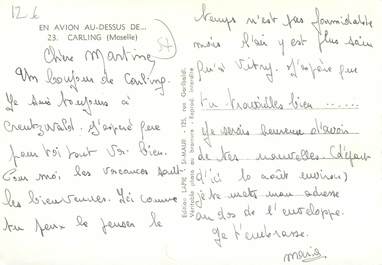 12.6
EN AVION AU-DESSUS DE...
23. CARLING (Moselle)
Chère Martine,
Un bonjour de Carling.
Je suis toujours à
Creutzwald. J'espère que
pour toi tout va bien.
Pour moi les vacances sont
les bienvenues. Ici comme
tu peux le penser le
Edition LAPIE - St-MAUR - 125, rue Garibaldi.
Véritable photo au bromure - Reprod. interdite
temps n'est pas formidable
mais l'air y est plus sain
qu'à Vitry. J'espère que
tu travailles bien ......
Je serais heureuse d'avoir
de tes nouvelles (départ
d'ici 10 août environ)
je te mets mon adresse
au dos de l'enveloppe.
Je t'embrasse.